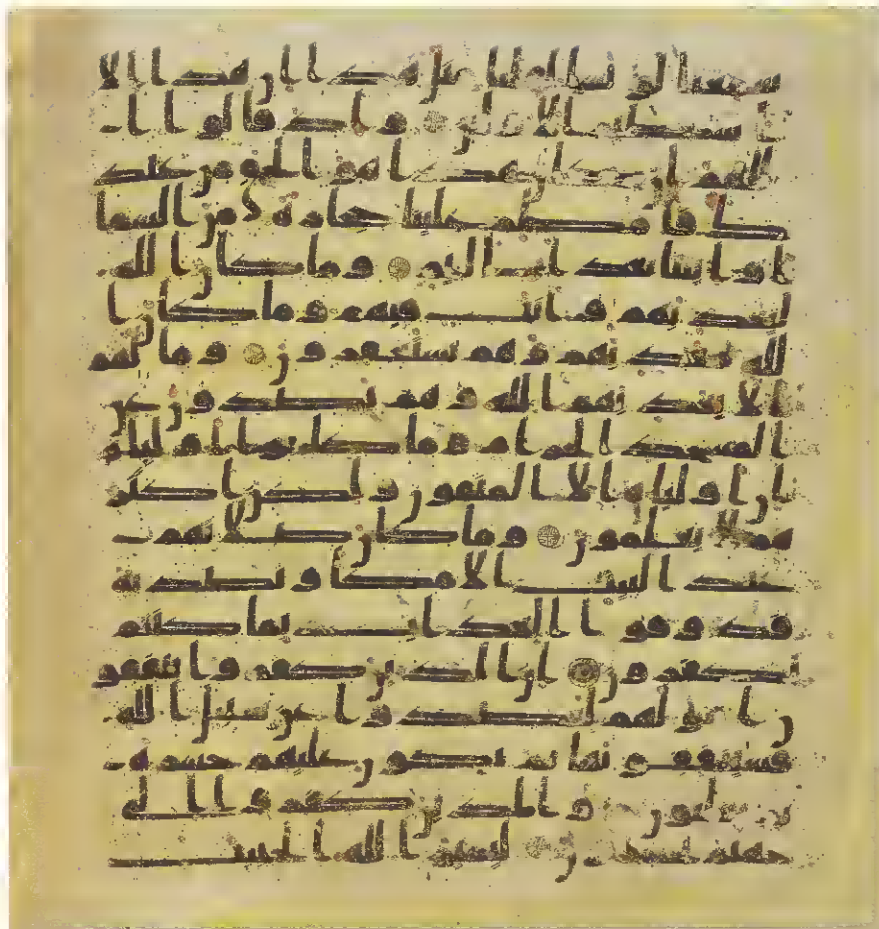 سمعنا لو نشا لقلنا مثل هذا ان هذا الا
ا سطير الاولين ۝ واذ قالوا ا
للهم ان كان هذا هو الحق من عند
ك فامطر علينا حجارة من السما
او ائتنا بعذاب اليم ۝ وما كان الله
ليعذبهم وانت فيهم وما كان ا
لله معذبهم وهم يستغفرون ۝ وما لهم
الا يعذبهم الله وهم يصدون عن
المسجد الحرام وما كانوا اولياه
ان اولياوه الا المتقون ولكن اكثر
هم لا يعلمون ۝ وما كان صلاتهم
عند البيت الا مكا وتصدية
فذوقوا العذاب بما كنتم
تكفرون ۝ ان الذين كفروا ينفقو
ن امولهم ليصدوا عن سبيل الله
فسينفقونها ثم تكون عليهم حسرة
ثم يغلبون والذين كفروا الى
جهنم يحشرون ۝ ليميز الله الخبيث